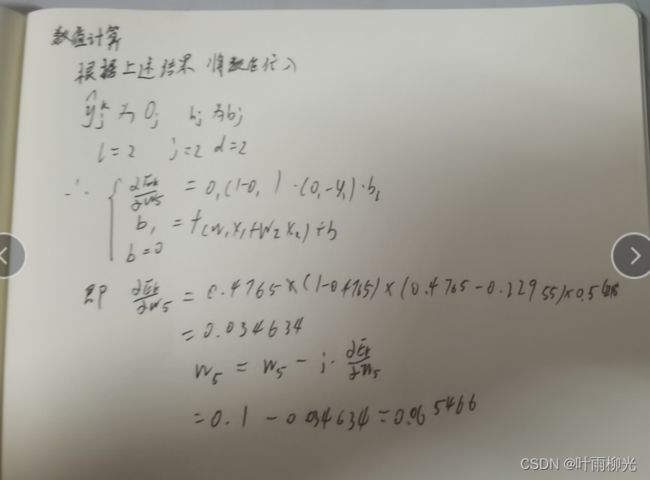 数值计算
根据上述结果 将数值代入
ŷ_j^k 为 O_j b_j 为 b_j
l=2 j=2 d=2
∴ { ∂E_k/∂w_5 = O_1(1-O_1)·(O_1-y_1)·b_1
b_1 = f(w_1x_1+w_2x_2)+b
b=0
即 ∂E_k/∂w_5 = 0.4765×(1-0.4765)×(0.4765-0.22955)×0.56
=0.034634
w_5 = w_5 - j·∂E_k/∂w_5
=0.1-0.034634=0.065466
CSDN @叶雨柳光